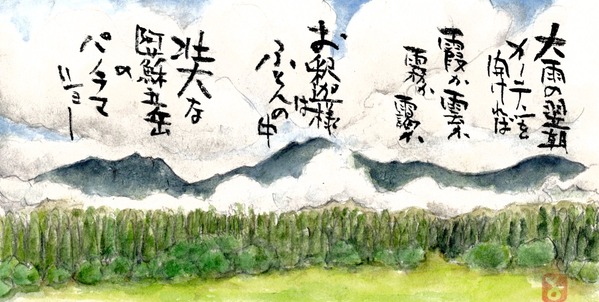 大雨の翌朝
カーテンを
開ければ
霞か雲か
霧か 靄か
お釈迦様は
ふとんの中
壮大な
阿蘇五岳
の
パノラマ
ショー